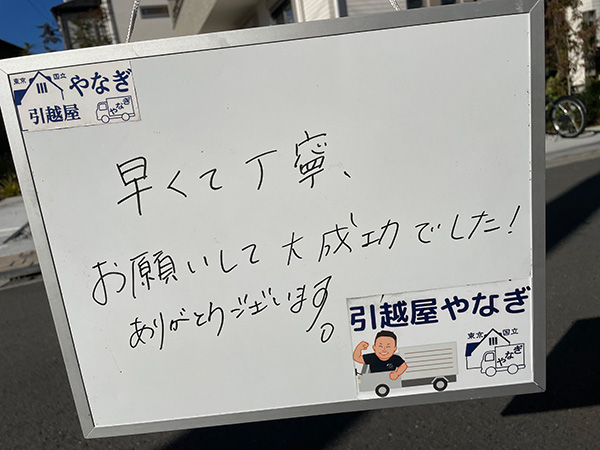 東京 国立 やなぎ
引越屋 やなぎ
早くて丁寧、
お願いして大成功でした!
ありがとうございます。
引越屋やなぎ
東京 国立
やなぎ